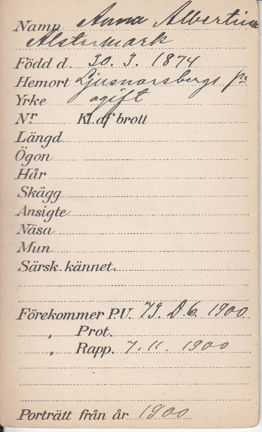 Namn Anna Albertina
Alstermark
Född d. 30. 3. 1874
Hemort Ljusnarsbergs fs
Yrke ogift
Nr Kl. af brott
Längd
Ögon
Hår
Skägg
Ansigte
Näsa
Mun
Särsk. kännet.
Förekommer P.U. 79. D 6. 1900
„ Prot.
„ Rapp. 7. 11. 1900
Porträtt från år 1900